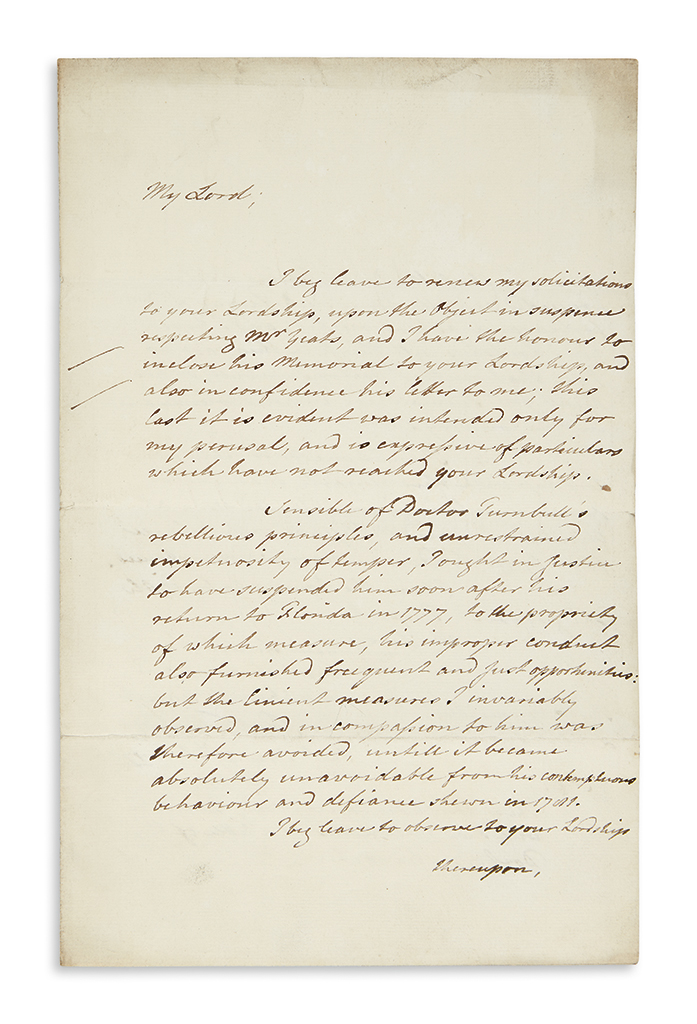 My Lord;
I beg leave to renew my solicitations
to your Lordship, upon the Object in suspence
respecting Mr Yeats, and I have the honour to
inclose his Memorial to your Lordship, and
also in confidence his letter to me; this
last it is evident was intended only for
my perusal, and is expressive of particulars
which have not reached your Lordship.
Sensible of Doctor Turnbull's
rebellious principles, and unrestrained
impetuosity of temper, I ought in Justice
to have suspended him soon after his
return to Florida in 1777, to the propriety
of which measure, his improper conduct
also furnished frecquent and just opportunities:
but the linient measures I invariably
observed, and in compassion to him was
therefore avoided, untill it became
absolutely unavoidable from his contemptuous
behaviour and defiance shewn in 1781.
I beg leave to observe to your Lordship
thereupon,